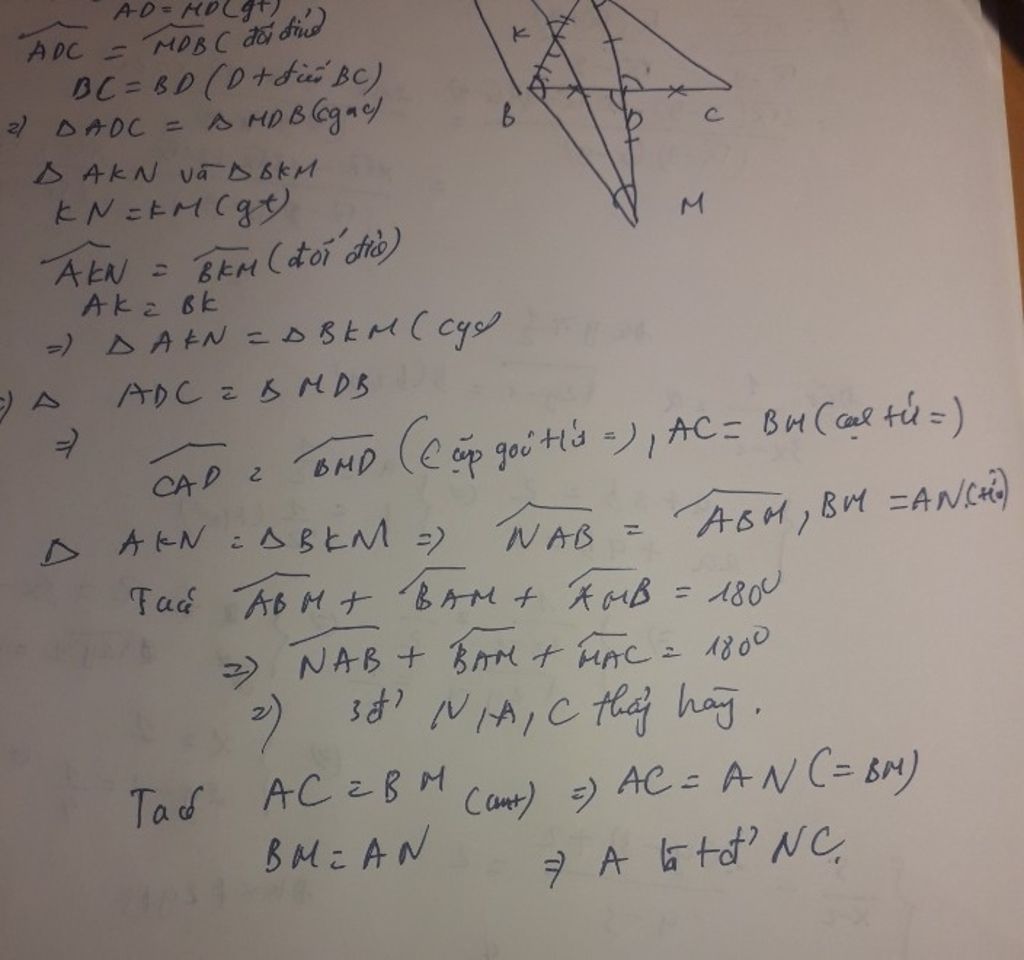 AD = MD (gt)
K
ADC = MDB ( đối đỉnh)
BC = BD (D t điểm BC)
B
D
C
=) Δ ADC = Δ MDB (cgc)
Δ AKN và Δ BKM
M
KN = KM (gt)
AKN = BKM (đối đỉnh)
AK = BK
=) Δ AKN = Δ BKM (cgc
=) Δ ADC = Δ MDB
=) CAD = BMD (Cặp góc tứ =), AC = BM (cạh tứ =)
Δ AKN = ΔBKM =) NAB = ABM, BM = AN (tứ)
Ta có ABM + BAM + AMB = 180⁰
=) NAB + BAM + MAC = 180⁰
=) 3đ' N, A, C thẳg hàg.
Ta có AC = BM (cmt) =) AC = AN (= BM)
BM = AN =) A là t đ' NC.